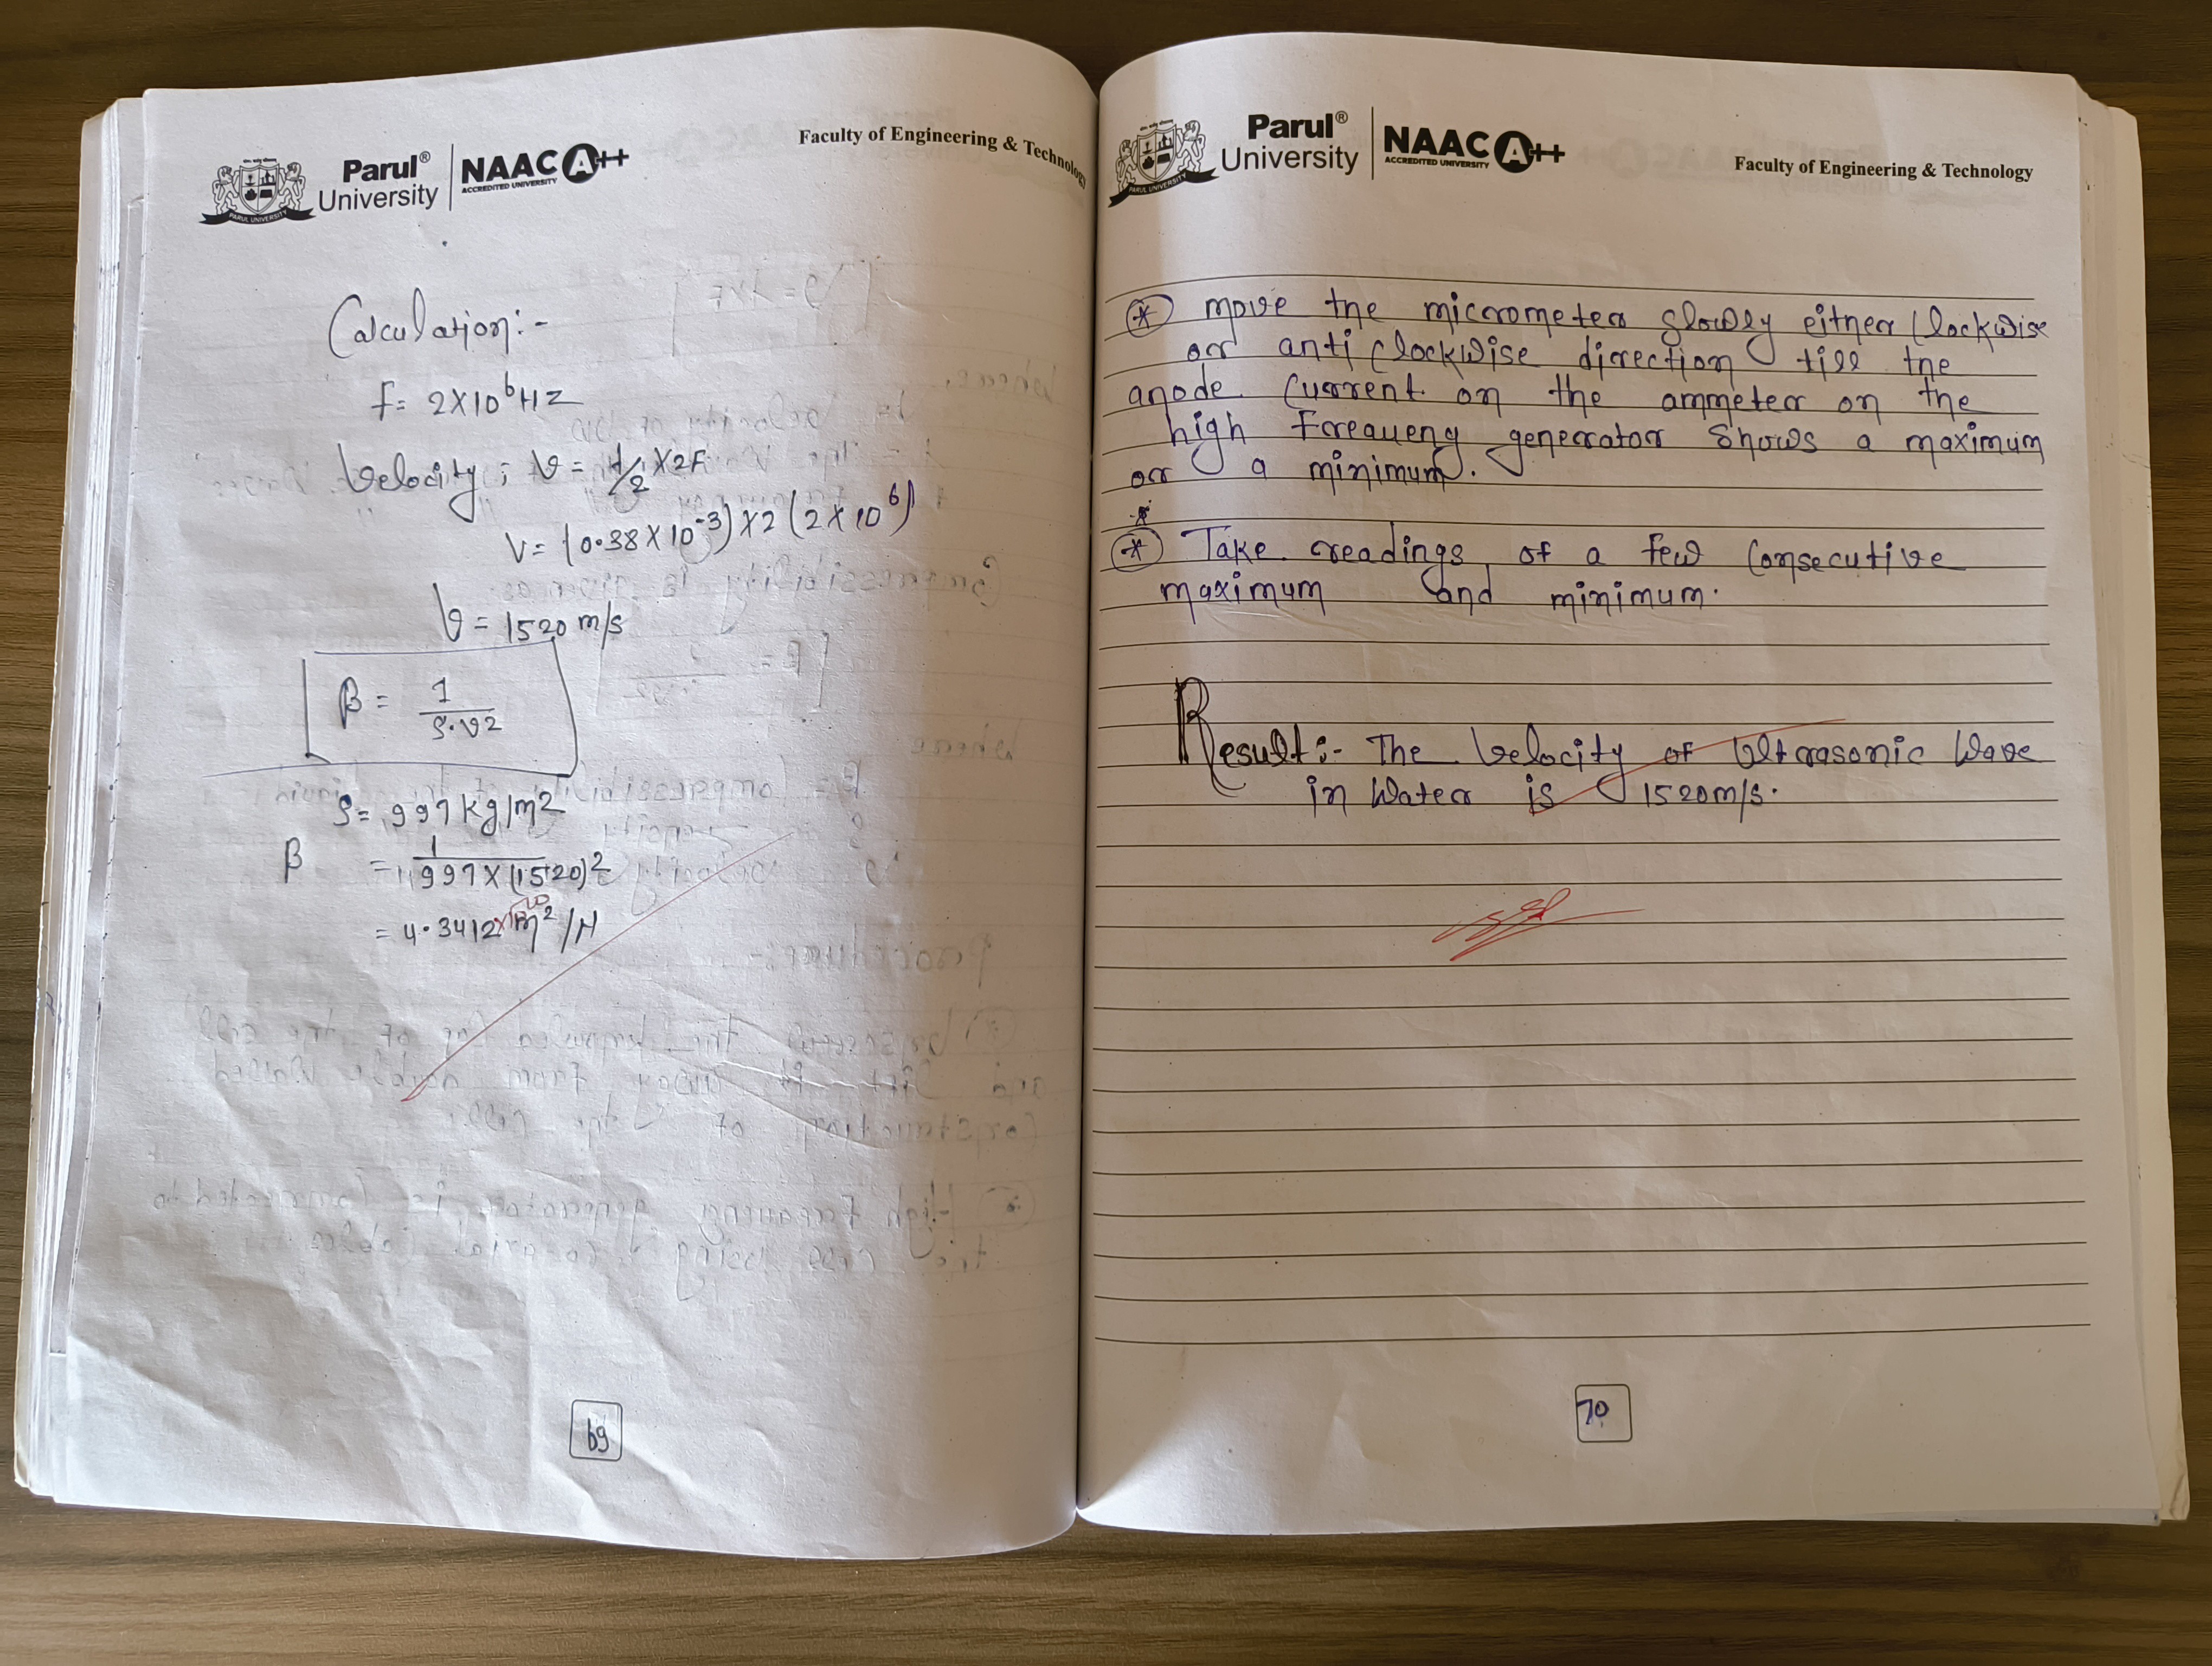 Parul® University
NAAC A++
ACCREDITED UNIVERSITY
PARUL UNIVERSITY
Faculty of Engineering & Technology
Calculation:-
f= 2×10⁶Hz
Velocity; v = λ/2 ×2F
V= (0.38×10⁻³)×2(2×10⁶)
v = 1520 m/s
β = 1/ρ.v2
ρ= 997 kg/m2
β = 1/997×(1520)²
= 4.3412×10⁻¹⁰ m²/N
69
Parul® University
NAAC A++
ACCREDITED UNIVERSITY
PARUL UNIVERSITY
Faculty of Engineering & Technology
* move the micrometer slowly either Clockwise
or anti clockwise direction till the
anode current on the ammeter on the
high Frequeny generator shows a maximum
or a minimum.
* Take readings of a few Consecutive
maximum and minimum.
Result:- The Velocity of Ultrasonic Wave
in Water is 1520m/s.
70